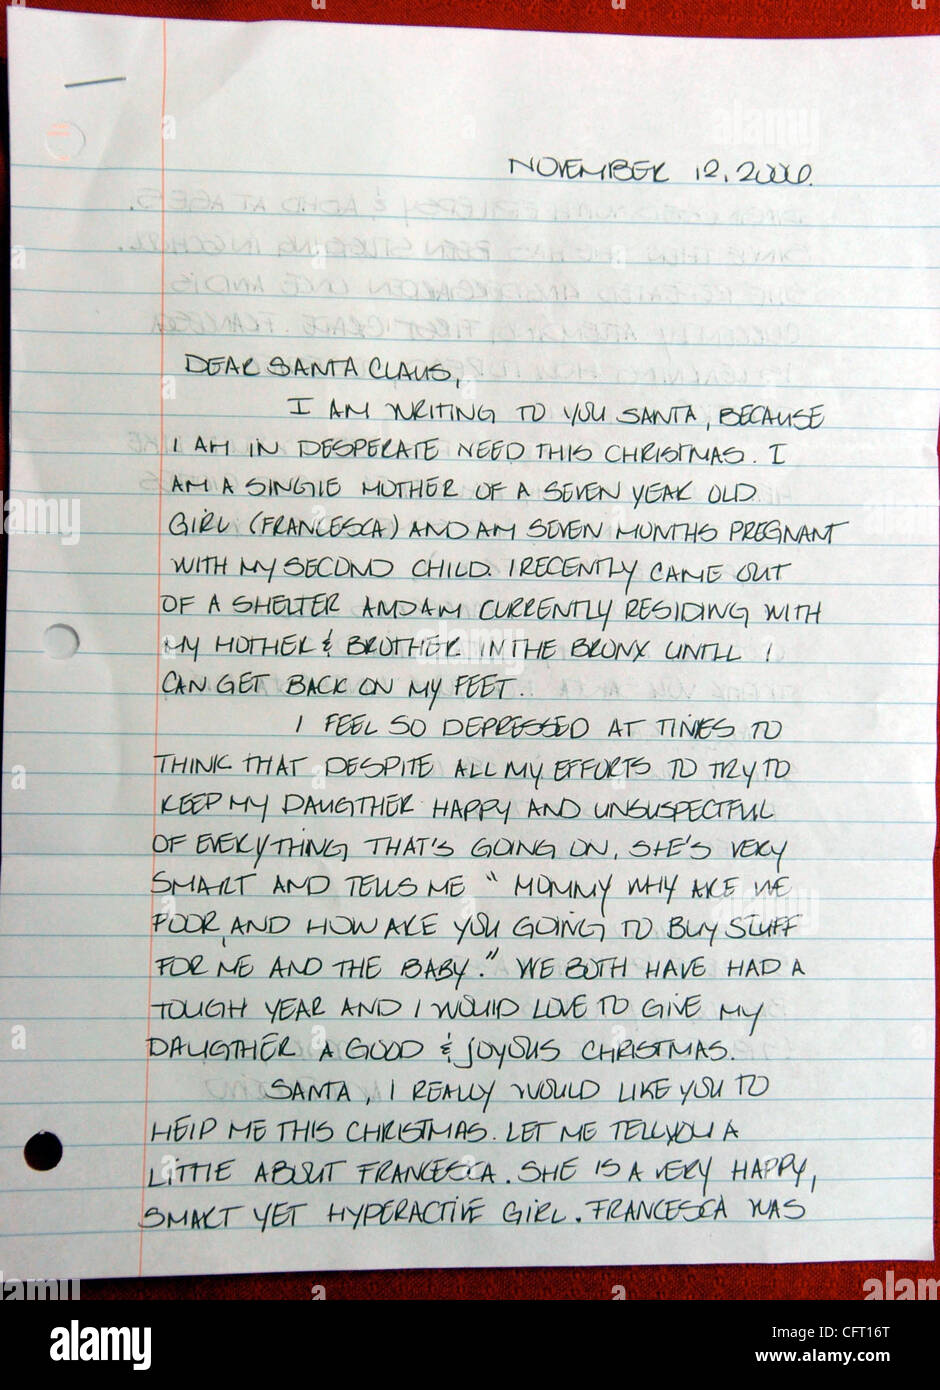 NOVEMBER 12, 2006.
DEAR SANTA CLAUS,
I AM WRITING TO YOU SANTA, BECAUSE
I AM IN DESPERATE NEED THIS CHRISTMAS. I
AM A SINGLE MOTHER OF A SEVEN YEAR OLD
GIRL (FRANCESCA) AND AM SEVEN MONTHS PREGNANT
WITH MY SECOND CHILD. I RECENTLY CAME OUT
OF A SHELTER AND AM CURRENTLY RESIDING WITH
MY MOTHER & BROTHER IN THE BRONX UNTIL I
CAN GET BACK ON MY FEET.
I FEEL SO DEPRESSED AT TIMES TO
THINK THAT DESPITE ALL MY EFFORTS TO TRY TO
KEEP MY DAUGTHER HAPPY AND UNSUSPECTFUL
OF EVERYTHING THAT'S GOING ON, SHE'S VERY
SMART AND TELLS ME "MOMMY WHY ARE WE
POOR, AND HOW ARE YOU GOING TO BUY STUFF
FOR ME AND THE BABY." WE BOTH HAVE HAD A
TOUGH YEAR AND I WOULD LOVE TO GIVE MY
DAUGTHER A GOOD & JOYOUS CHRISTMAS.
SANTA, I REALLY WOULD LIKE YOU TO
HELP ME THIS CHRISTMAS. LET ME TELL YOU A
LITTLE ABOUT FRANCESCA. SHE IS A VERY HAPPY,
SMART YET HYPERACTIVE GIRL. FRANCESCA WAS
alamy
Image ID: CFT16T
www.alamy.com